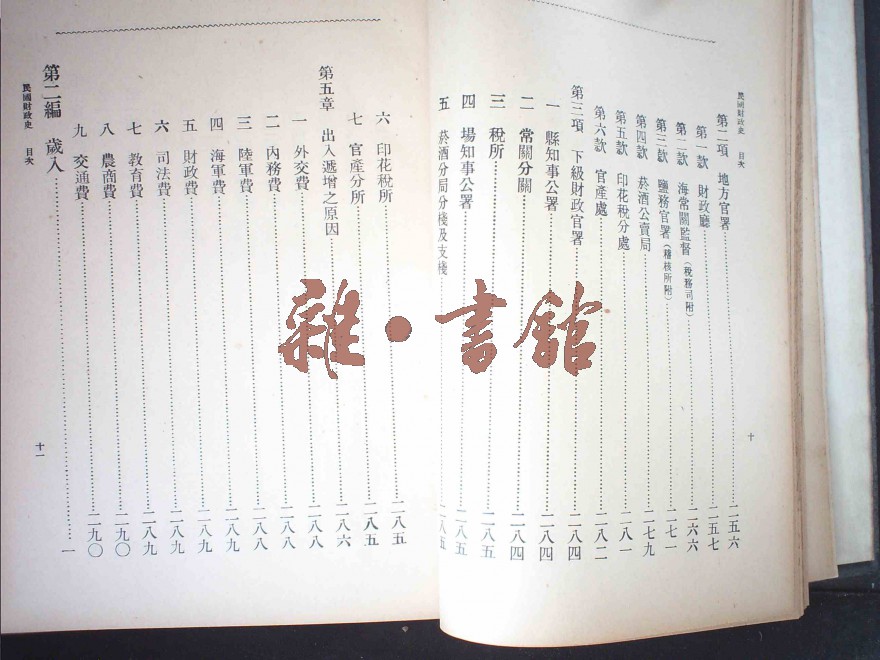 民國財政史 目次
第二項 地方官署……二五六
第一款 財政廳……二五七
第二款 海常關監督(稅務司附)……二六六
第三款 鹽務官署(稽核所附)……二七一
第四款 菸酒公賣局……二七九
第五款 印花稅分處……二八一
第六款 官產處……二八二
第三項 下級財政官署……二八四
一 縣知事公署……二八四
二 常關分關……二八四
三 稅所……二八五
四 場知事公署……二八五
五 菸酒分局分棧及支棧……二八五
十
六 印花稅所……二八五
七 官產分所……二八五
第五章 出入遞增之原因……二八六
一 外交費……二八八
二 內務費……二八八
三 陸軍費……二八八
四 海軍費……二八九
五 財政費……二八九
六 司法費……二八九
七 教育費……二八九
八 農商費……二九〇
九 交通費……二九〇
第二編 歲入……一
民國財政史 目次
十一
雜·書館